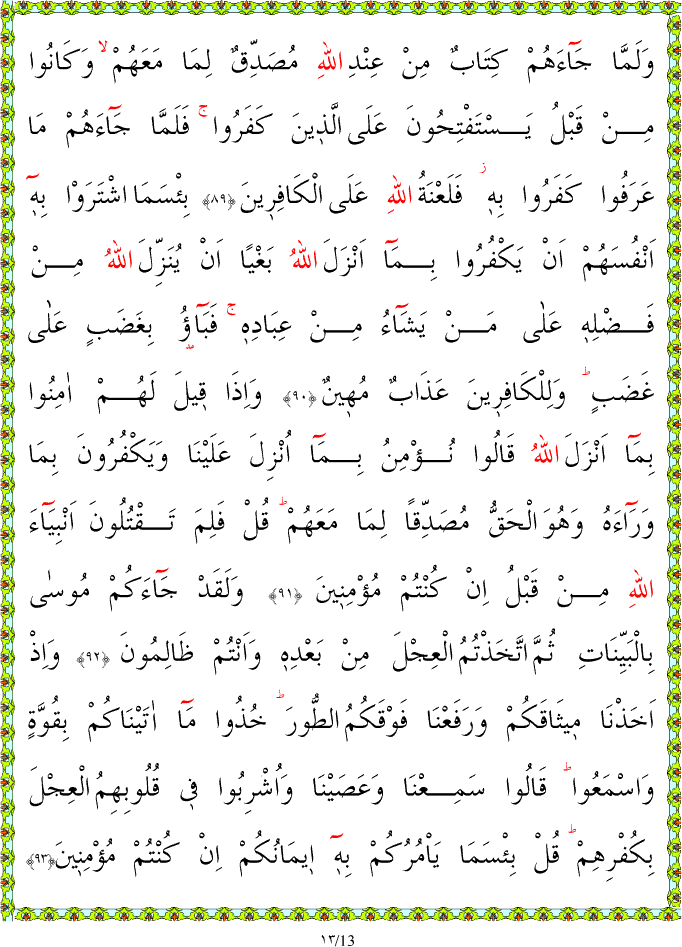 وَلَمَّا جَٓاءَهُمْ كِتَابٌ مِنْ عِنْدِ اللّٰهِ مُصَدِّقٌ لِمَا مَعَهُمْۙ وَكَانُوا
مِنْ قَبْلُ يَسْتَفْتِحُونَ عَلَى الَّذ۪ينَ كَفَرُواۚ فَلَمَّا جَٓاءَهُمْ مَا
عَرَفُوا كَفَرُوا بِه۪ۘ فَلَعْنَةُ اللّٰهِ عَلَى الْكَافِر۪ينَ ﴿٨٩﴾ بِئْسَمَا اشْتَرَوْا بِه۪ٓ
اَنْفُسَهُمْ اَنْ يَكْفُرُوا بِمَٓا اَنْزَلَ اللّٰهُ بَغْيًا اَنْ يُنَزِّلَ اللّٰهُ مِنْ
فَضْلِه۪ عَلٰى مَنْ يَشَٓاءُ مِنْ عِبَادِه۪ۚ فَبَٓاؤُ۫ بِغَضَبٍ عَلٰى
غَضَبٍۜ وَلِلْكَافِر۪ينَ عَذَابٌ مُه۪ينٌ ﴿٩٠﴾ وَاِذَا ق۪يلَ لَهُمْ اٰمِنُوا
بِمَٓا اَنْزَلَ اللّٰهُ قَالُوا نُؤْمِنُ بِمَٓا اُنْزِلَ عَلَيْنَا وَيَكْفُرُونَ بِمَا
وَرَٓاءَهُ وَهُوَ الْحَقُّ مُصَدِّقًا لِمَا مَعَهُمْۜ قُلْ فَلِمَ تَقْتُلُونَ اَنْبِيَٓاءَ
اللّٰهِ مِنْ قَبْلُ اِنْ كُنْتُمْ مُؤْمِن۪ينَ ﴿٩١﴾ وَلَقَدْ جَٓاءَكُمْ مُوسٰى
بِالْبَيِّنَاتِ ثُمَّ اتَّخَذْتُمُ الْعِجْلَ مِنْ بَعْدِه۪ وَاَنْتُمْ ظَالِمُونَ ﴿٩٢﴾ وَاِذْ
اَخَذْنَا م۪يثَاقَكُمْ وَرَفَعْنَا فَوْقَكُمُ الطُّورَۜ خُذُوا مَٓا اٰتَيْنَاكُمْ بِقُوَّةٍ
وَاسْمَعُواۜ قَالُوا سَمِعْنَا وَعَصَيْنَا وَاُشْرِبُوا ف۪ي قُلُوبِهِمُ الْعِجْلَ
بِكُفْرِهِمْۜ قُلْ بِئْسَمَا يَأْمُرُكُمْ بِه۪ٓ ا۪يمَانُكُمْ اِنْ كُنْتُمْ مُؤْمِن۪ينَ ﴿٩٣﴾
١٣/13